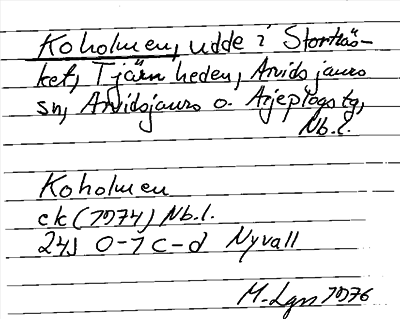 Koholmen, udde i Storträs-
ket, Tjärnheden, Arvidsjaurs
sn, Arvidsjaurs o. Arjeplogs tg,
Nb.l.
Koholmen
ek (1974) Nb.l.
24J 0-1 c-d Nyvall
M. Lgn 1976